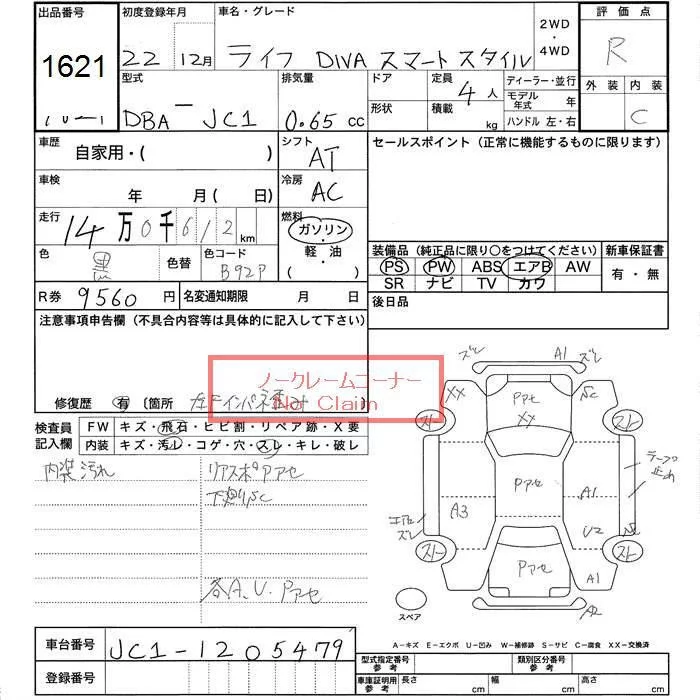 出品番号 初度登録年月 車名・グレード 2WD・4WD 評価点
1621 22 12月 ライフ DIVA スマートスタイル R
型式 排気量 ドア 定員 ディーラー・並行 外装 内装
4人 モデル年式 年
DBA－JC1 0.65 cc 形状 積載 kg ハンドル 左・右 C
車歴 シフト セールスポイント（正常に機能するものに限ります）
自家用・( ) AT
車検 冷房
年 月(日) AC
走行 燃料
14万0千612km ガソリン・軽・油
色 色替 色コード ( )
黒 B92P
装備品（純正品に限り○をつけてください） 新車保証書
PS PW ABS エアB AW 有・無
SR ナビ TV カワ
R券 9560円 名変通知期限 月 日 後日品
注意事項申告欄（不具合内容等は具体的に記入して下さい）
ノークレームコーナー
Not Claim
修復歴 有 〔箇所 左Fインパネ
検査員記入欄 FW キズ・飛石・ヒビ割・リペア跡・X要
内装 キズ・汚レ・コゲ・穴・スレ・キレ・破レ
内装汚れ リアスポPアセ
下廻りSC
各A.U.Pアセ
ズレ A1 ズレ
XX Pアセ SC
XX
スト スト
Pアセ テープ止め
A3 A1
エアロズレ U2
スト Pアセ スト
A1
スペア
A－キズ E－エクボ U－凹み W－補修跡 S－サビ C－腐食 XX－交換済
車台番号 JC1-1205479
登録番号
型式指定番号 参考 類別区分番号 参考
車庫証明用 参考 長さ cm 幅 cm 高さ cm